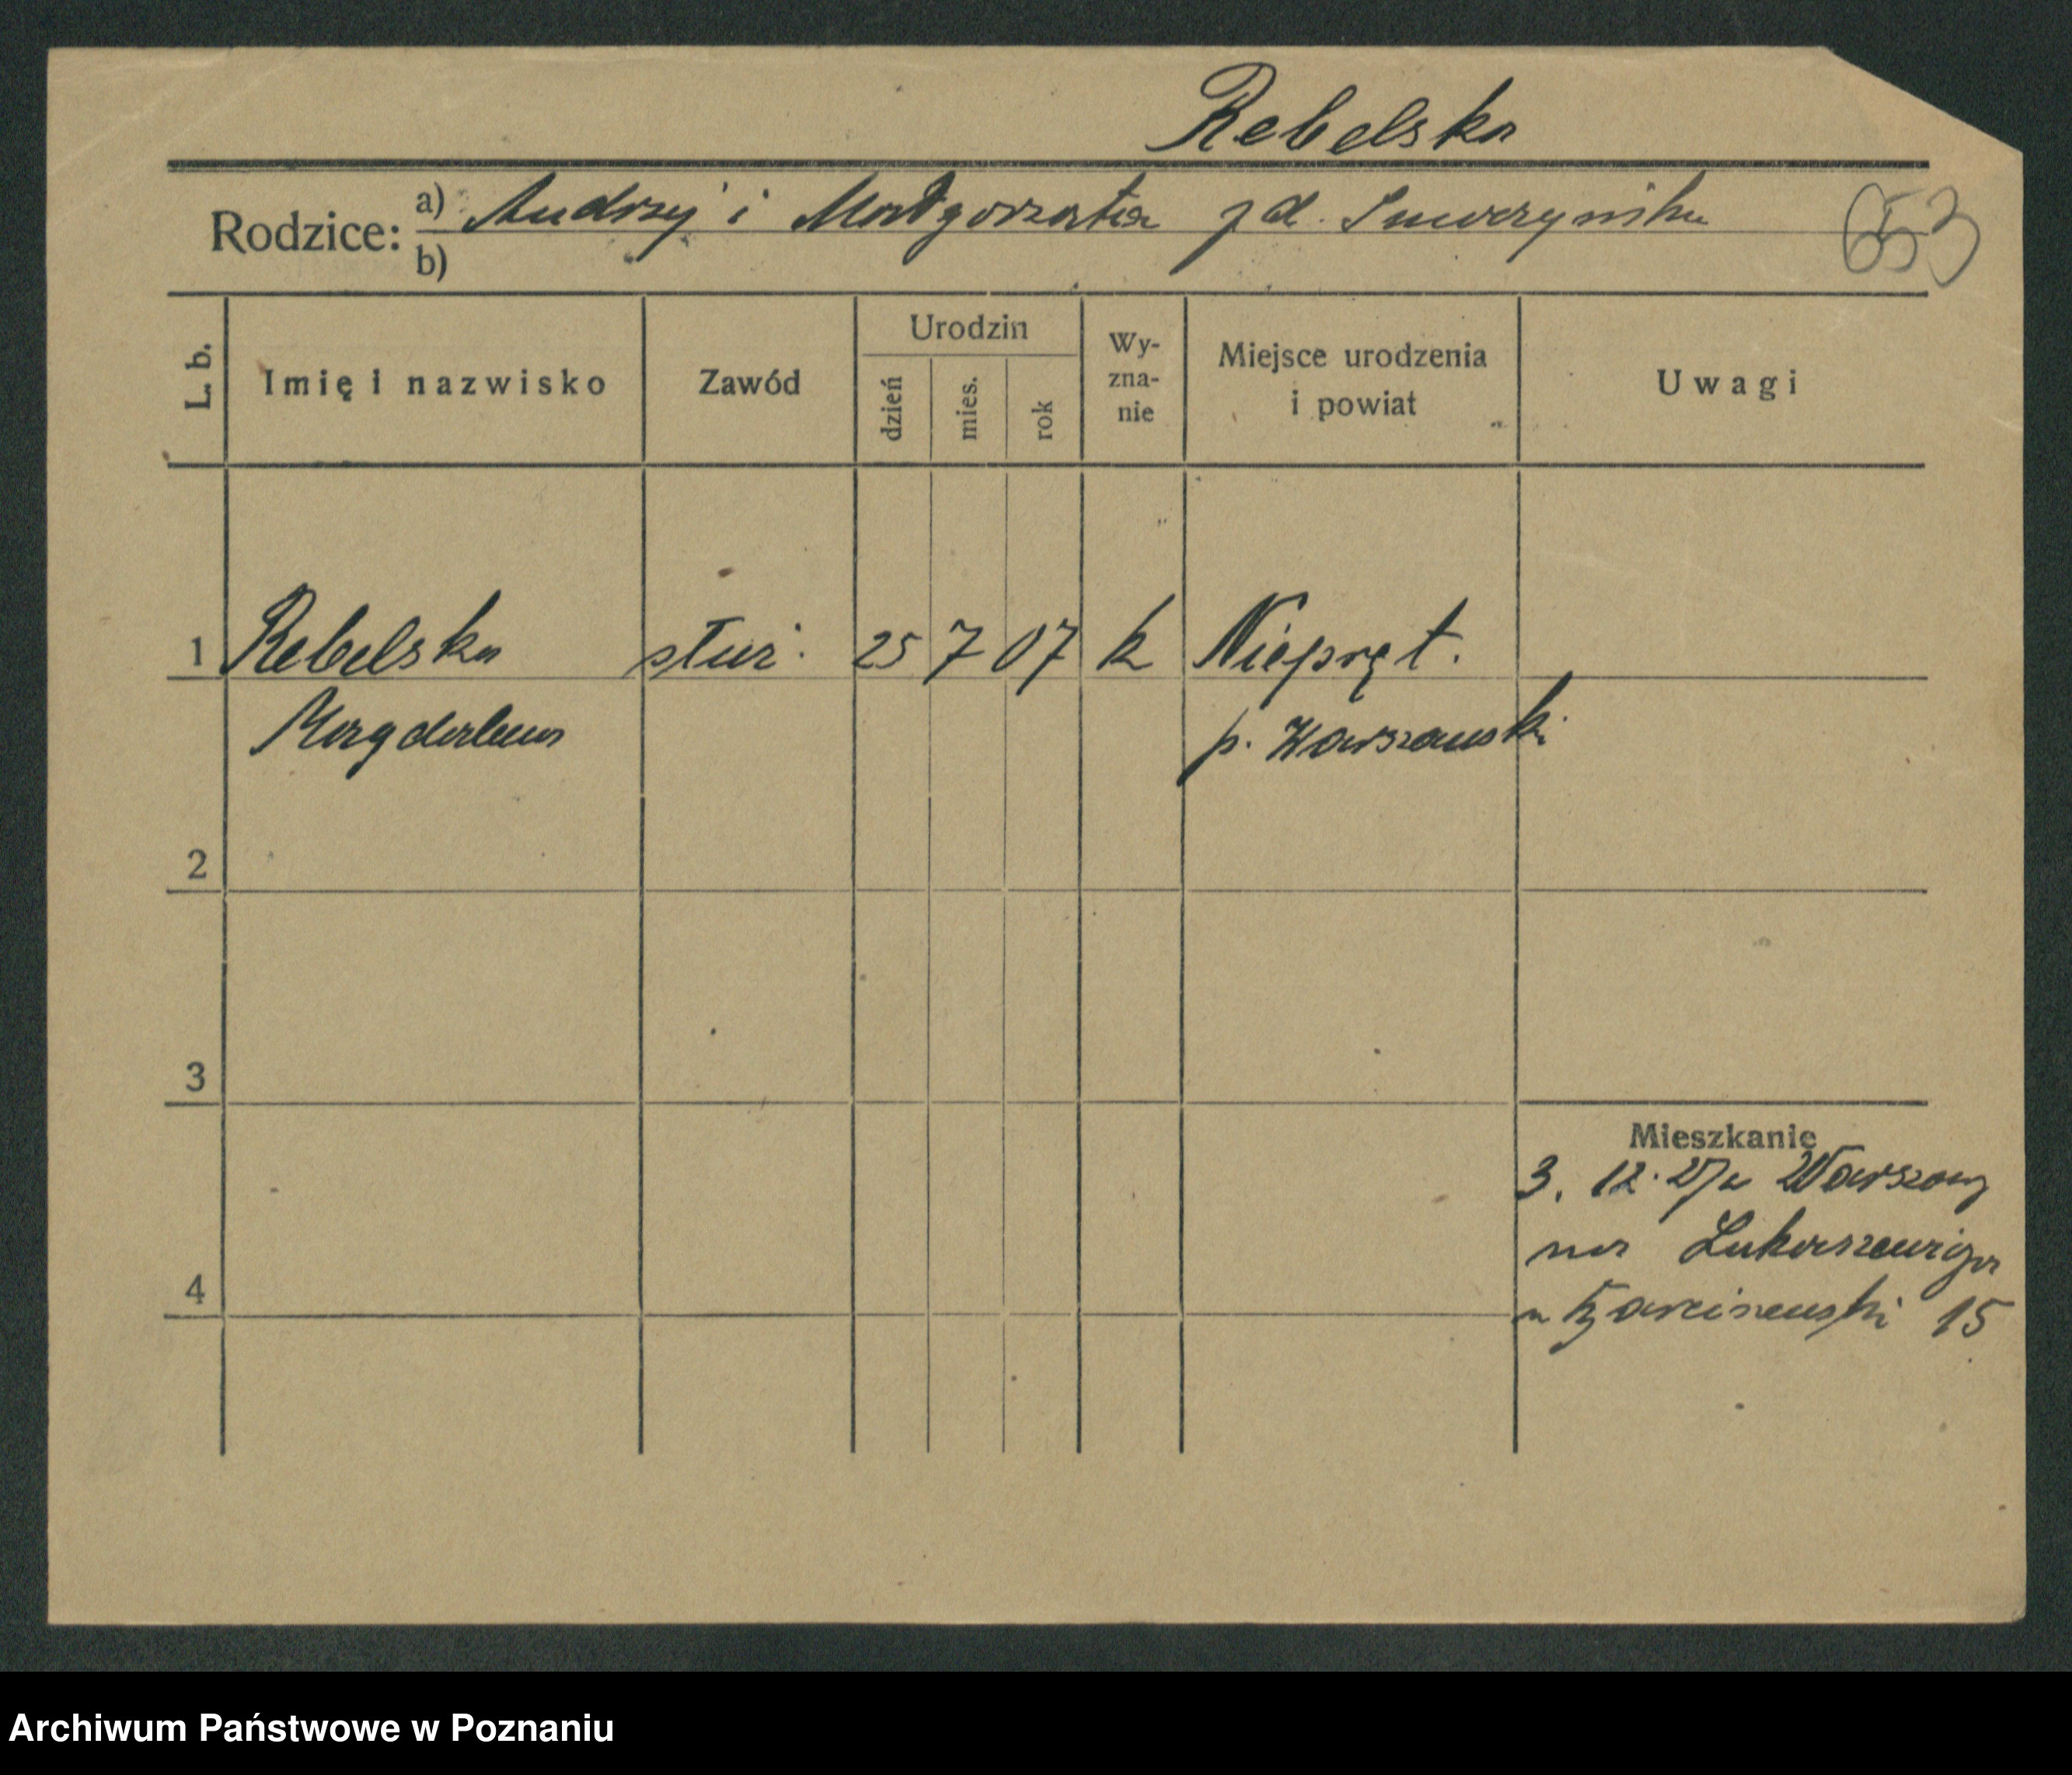 Rebelska
Rodzice: a) Andrzej i Małgorzata
b)
653
L. b. Imię i nazwisko Zawód Urodzin dzień mies. rok Wy-zna-nie Miejsce urodzenia i powiat Uwagi
1 Rebelska służ. 25 7 07 k Niepręt.
Magdalena p. Warszawski
2
3
Mieszkanie
3. 12. 27 z Warszawy
na Łukaszewicza
4
15
Archiwum Państwowe w Poznaniu